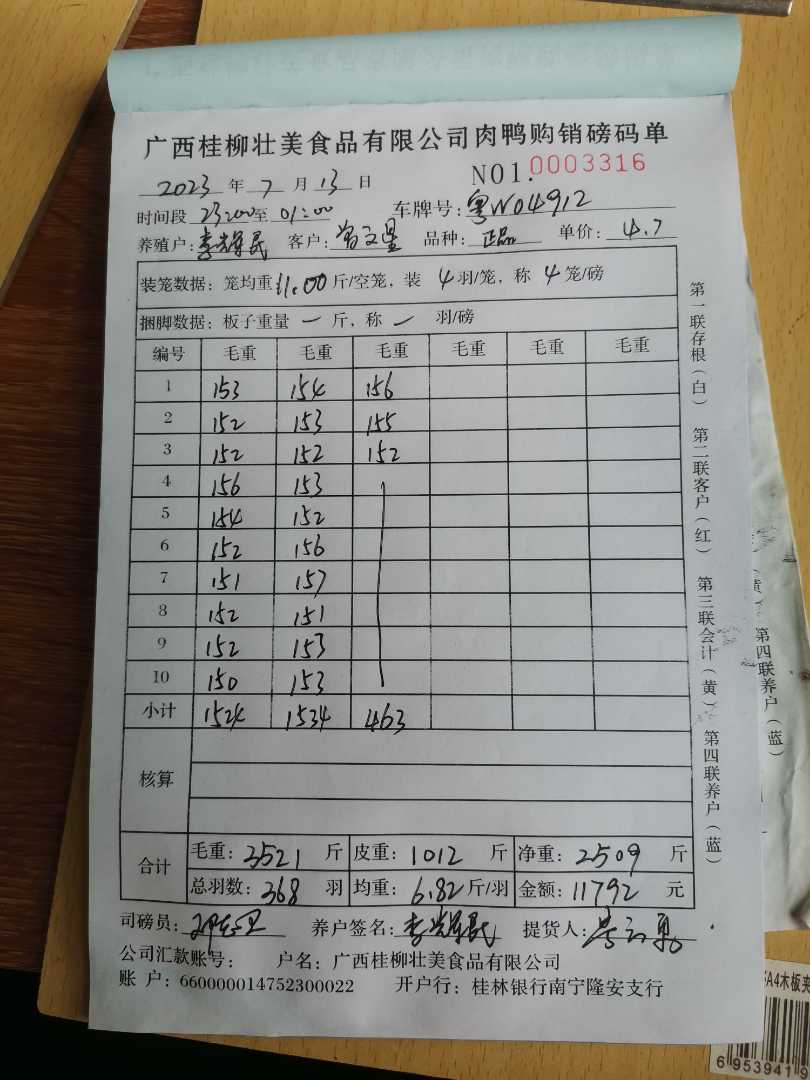 广西桂柳壮美食品有限公司肉鸭购销磅码单
NO1. 0003316
2023 年 7 月 13 日
时间段 23:00 至 01:00 车牌号: 粤W04912
养殖户: 李辉民 客户: 曾文星 品种: 正品 单价: 4.7
装笼数据: 笼均重 11.00 斤/空笼, 装 4 羽/笼, 称 4 笼/磅
捆脚数据: 板子重量 一 斤, 称 一 羽/磅
编号 毛重 毛重 毛重 毛重 毛重 毛重
1 153 154 156
2 152 153 155
3 152 152 152
4 156 153
5 154 152
6 152 156
7 151 157
8 152 151
9 152 153
10 150 153
小计 1524 1534 463
核算
合计 毛重: 3521 斤 皮重: 1012 斤 净重: 2509 斤
总羽数: 368 羽 均重: 6.82 斤/羽 金额: 11792 元
司磅员: 养户签名: 李辉民 提货人:
公司汇款账号: 户名: 广西桂柳壮美食品有限公司
账 户: 660000014752300022 开户行: 桂林银行南宁隆安支行
第一联存根(白) 第二联客户(红) 第三联会计(黄) 第四联养户(蓝)
第四联养户(蓝)
A4木板夹
6 953941